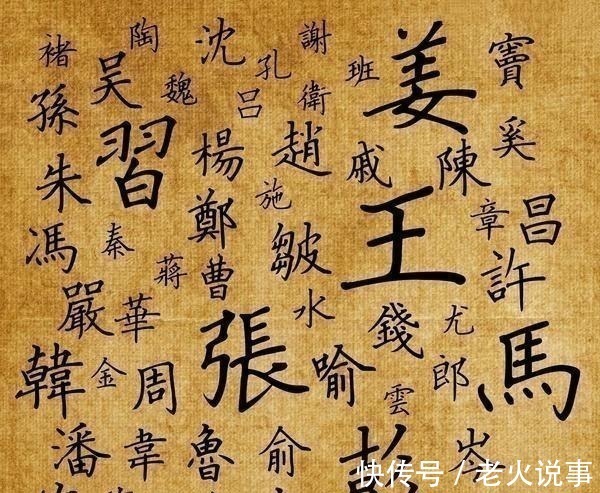 褚 陶 沈 謝 竇
吴 魏 孔 班 姜
孫 吕 衛 奚
習 楊 趙 戚 陳
朱 施 鄭 章 昌
馮 秦 蔣 曹 皺 王 許
嚴 華 水 錢 尤
韓 金 周 張 喻 雲 郎 馬
潘 韋 魯 俞 岑
快传号 / 老火说事